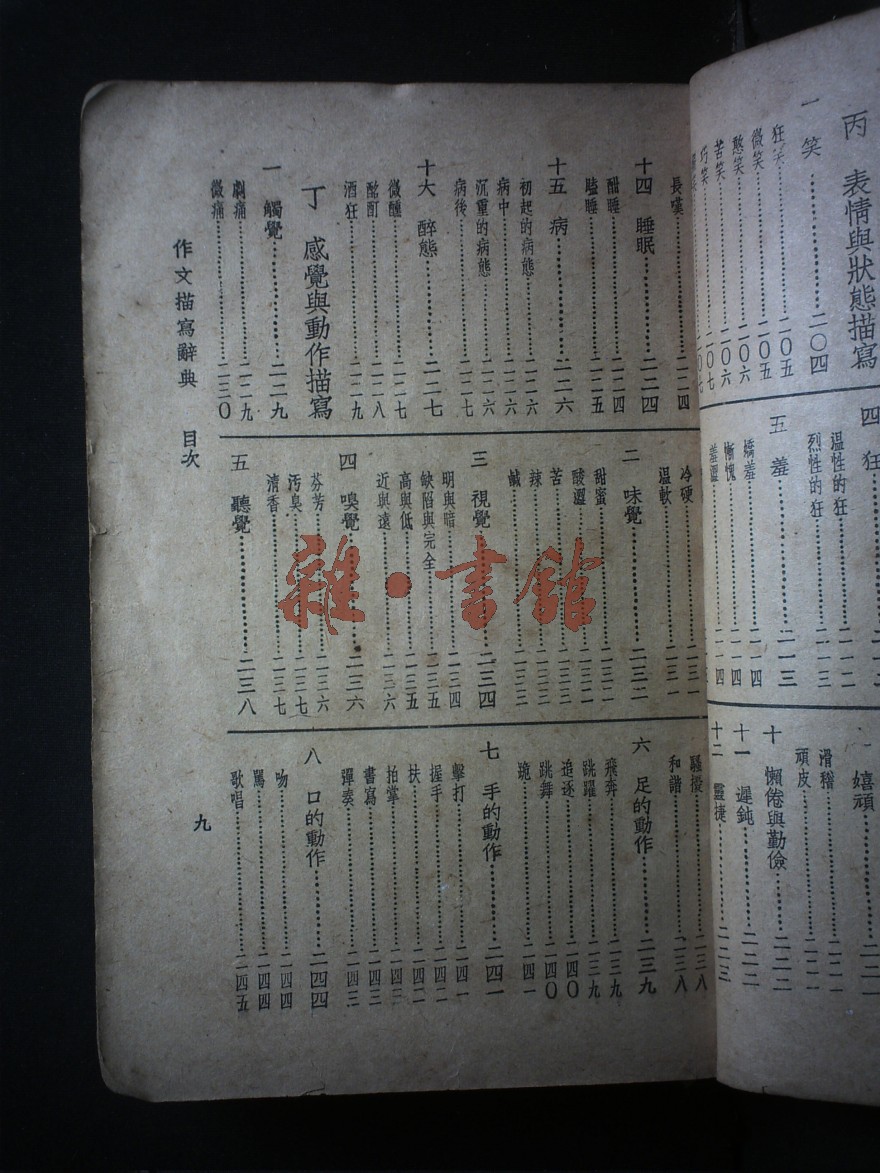 丙 表情與狀態描寫
一 笑…………二〇四
狂笑…………二〇五
微笑…………二〇五
憨笑…………二〇六
苦笑…………二〇六
巧笑…………二〇七
四 狂
溫性的狂…………二一二
烈性的狂…………二一三
五 羞…………二一三
嬌羞…………二一四
慚愧…………二一四
羞澀…………二一四
嬉頑…………二二一
滑稽…………二二一
頑皮…………二二二
十 懶倦與勤儉…………二二二
十一 遲鈍…………二二二
十二 靈捷…………二二三
長嘆…………二二四
十四 睡眠…………二二四
酣睡…………二二四
瞌睡…………二二五
十五 病…………二二六
初起的病態…………二二六
病中…………二二六
沉重的病態…………二二六
病後…………二二七
十六 醉態…………二二七
微醺…………二二七
酩酊…………二二八
酒狂…………二二九
丁 感覺與動作描寫
一 觸覺…………二二九
劇痛…………二二九
微痛…………二三〇
冷硬…………二三一
溫軟…………二三一
二 味覺…………二三二
甜蜜…………二三二
酸澀…………二三二
苦…………二三三
辣…………二三三
鹹…………二三三
三 視覺…………二三四
明與暗…………二三四
缺陷與完全…………二三五
高與低…………二三五
近與遠…………二三六
四 嗅覺…………二三六
芬芳…………二三六
汚臭…………二三七
清香…………二三七
五 聽覺…………二三八
騷擾…………二三八
和諧…………二三八
六 足的動作…………二三九
飛奔…………二三九
跳躍…………二三九
追逐…………二四〇
跳舞…………二四〇
跪…………二四一
七 手的動作…………二四一
擊打…………二四一
握手…………二四二
扶…………二四二
拍掌…………二四三
書寫…………二四三
彈奏…………二四三
八 口的動作…………二四四
吻…………二四四
罵…………二四四
歌唱…………二四五
作文描寫辭典 目次
九
雜·書館